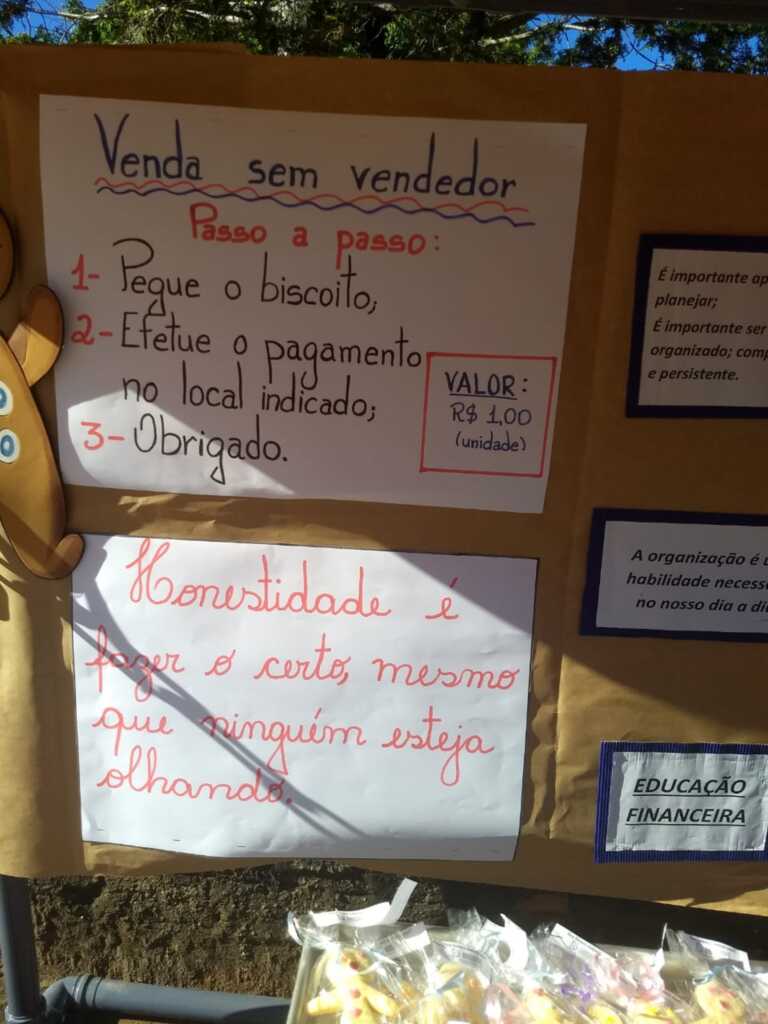 Venda sem vendedor
Passo a passo:
1- Pegue o biscoito;
2- Efetue o pagamento
no local indicado;
3- Obrigado.
VALOR:
R$ 1,00
(unidade)
Honestidade é
fazer o certo, mesmo
que ninguém esteja
olhando.
É importante
planejar;
É importante ser
organizado;
e persistente.
A organização é
habilidade
no nosso dia a
EDUCAÇÃO
FINANCEIRA